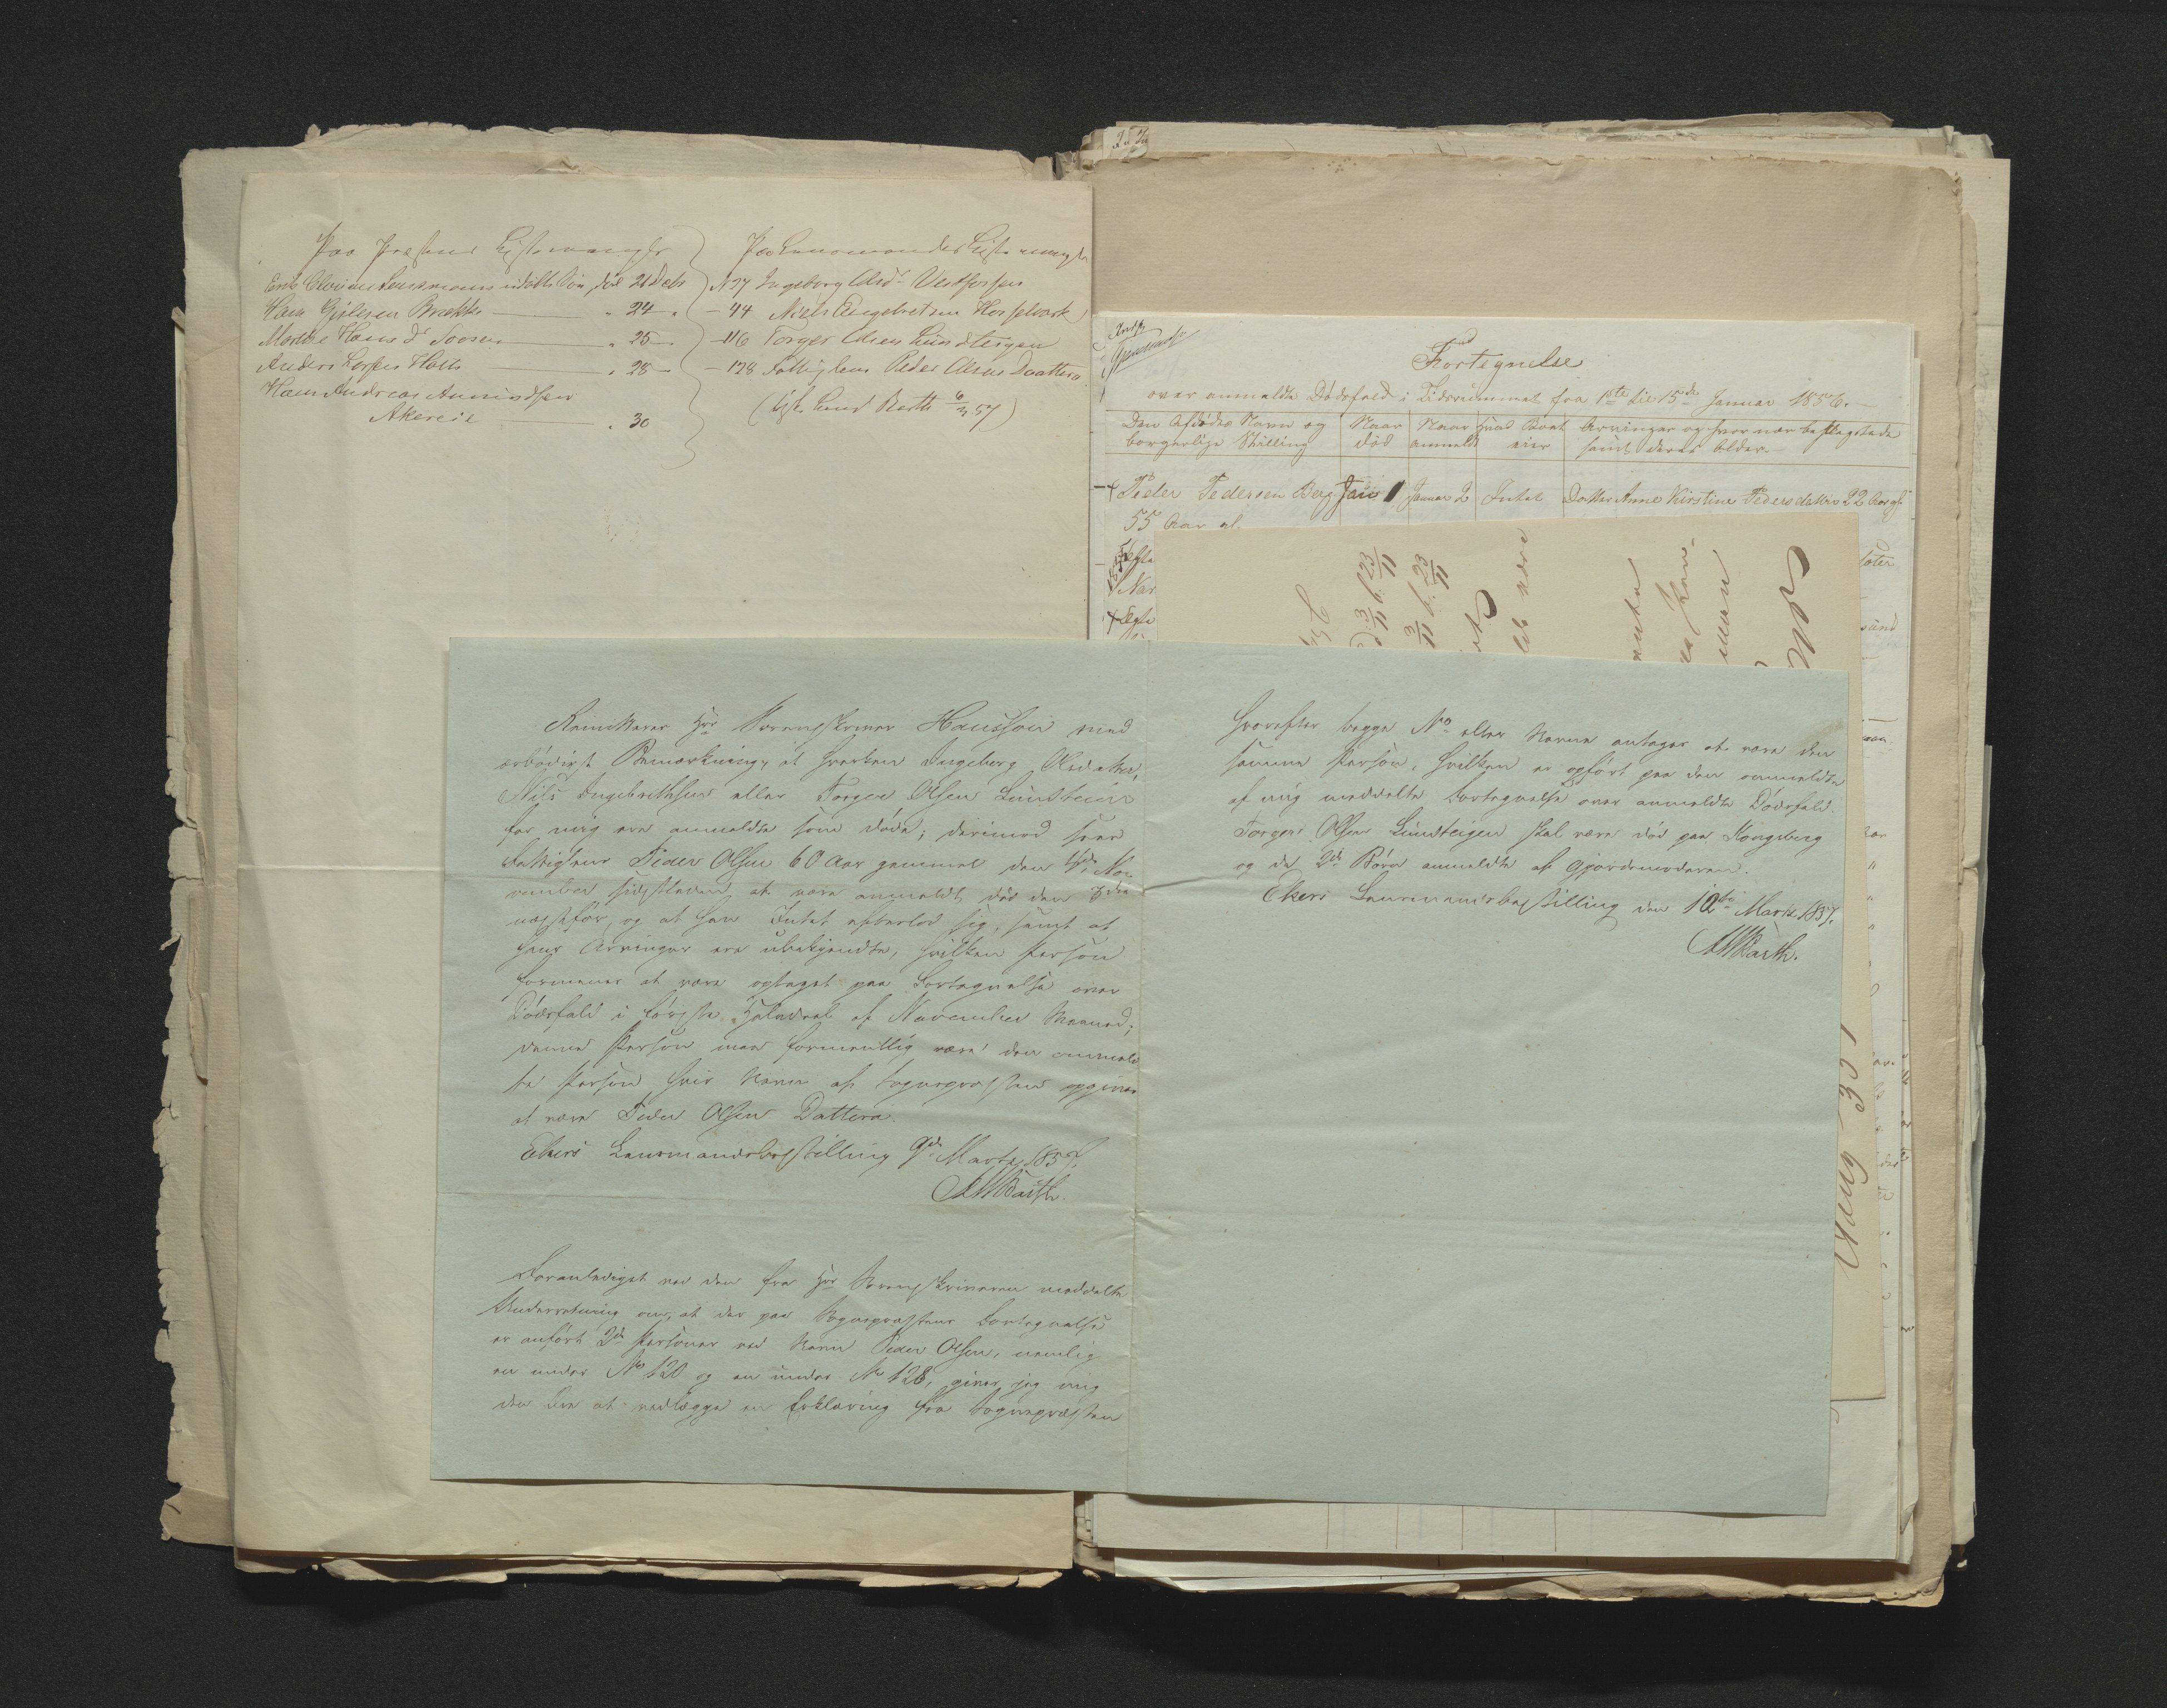 Paa Præstens Liste mangler
Erik Olsen Lensmans udøbte Søn, død 21 Decb
Hans Gjulsen Brække — " 24 "
Marthe Hansd Soosen — " 25 "
Anders Larsen Holte — " 28 "
Hans Andreas Amundsen
Akereie — " 30
Paa Lensmandens Liste mangler
N 27 Ingeborg Olsd Vestfossen
- 44 Niels Engebretsen
- 116 Torger Olsen Lundteigen
- 128 Fattiglem Peder Olsen Daattera
(tilsk. Lensm Barth 6/3 57)
Fortegnelse
over anmeldte Dødsfald i Tidsrummet fra 1ste til 15de Januar 1856.
Den Afdødes Navn og borgerlige Stilling
Naar død
Naar anmeldt
Hvad Boet eier
Arvinger og hvor nær beslægtede samt deres Alder.
Peder Pedersen Berg Jan 1 Januar 2 Intet Datter Anne Kirstine Pedersdatter 22 Aar gl
55 Aar gl.
Remitteres Hr Sorenskriver Hansson med
ærbødigst Bemærkning, at hverken Ingeborg Olsdatter,
Nils Ingebrethsen eller Torger Olsen Lundteien
for mig ere anmeldte som døde; derimod sees
Fattiglem Peder Olsen 60 Aar gammel den
vember sidstleden at være anmeldt død den
næstfør, og at han Intet efterlod sig, samt at
hans Arvinger ere ubekjendte, hvilken Person
formenes at være optaget paa Fortegnelse over
Dødsfald i første Halvdeel af November Maaned;
denne Person maa formentlig være den ommeld
te Person hvis Navn af Sognepræsten opgives
at være Peder Olsen Dattera.
Ekers Lensmandsbestilling 9de Marts 1857.
AWBarth.
Foranlediget ved den fra Hr Sorenskriveren meddelte
Underretning om, at der paa Sognepræstens Fortegnelse
er anført 2de Personer ved Navn Peder Olsen, nemlig
en under No 120 og en under No 128, giver jeg mig
den Ære at vedlægge en Erklæring fra Sognepræsten
hvorefter begge No eller Navne antages at være den
samme Person, hvilken er opført paa den ommeldte
af mig meddelte Fortegnelse over anmeldte Dødsfald.
Torger Olsen Lundteigen skal være død paa Kongsberg
og de 2de Børn anmeldte af Gjordemoderen.
Ekers Lensmandsbestilling den 10de Marts 1857.
AWBarth.